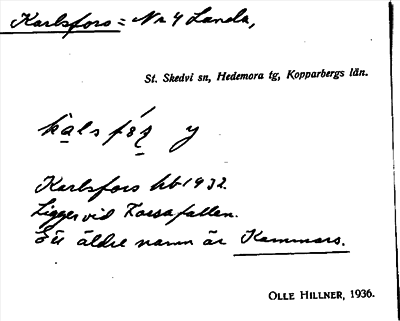 Karlsfors = Nr 4 Landa,
St. Skedvi sn, Hedemora tg, Kopparbergs län.
y
Karlsfors hb 1932.
Ligger vid Forsafallen.
Ett äldre namn är Kammars.
OLLE HILLNER, 1936.